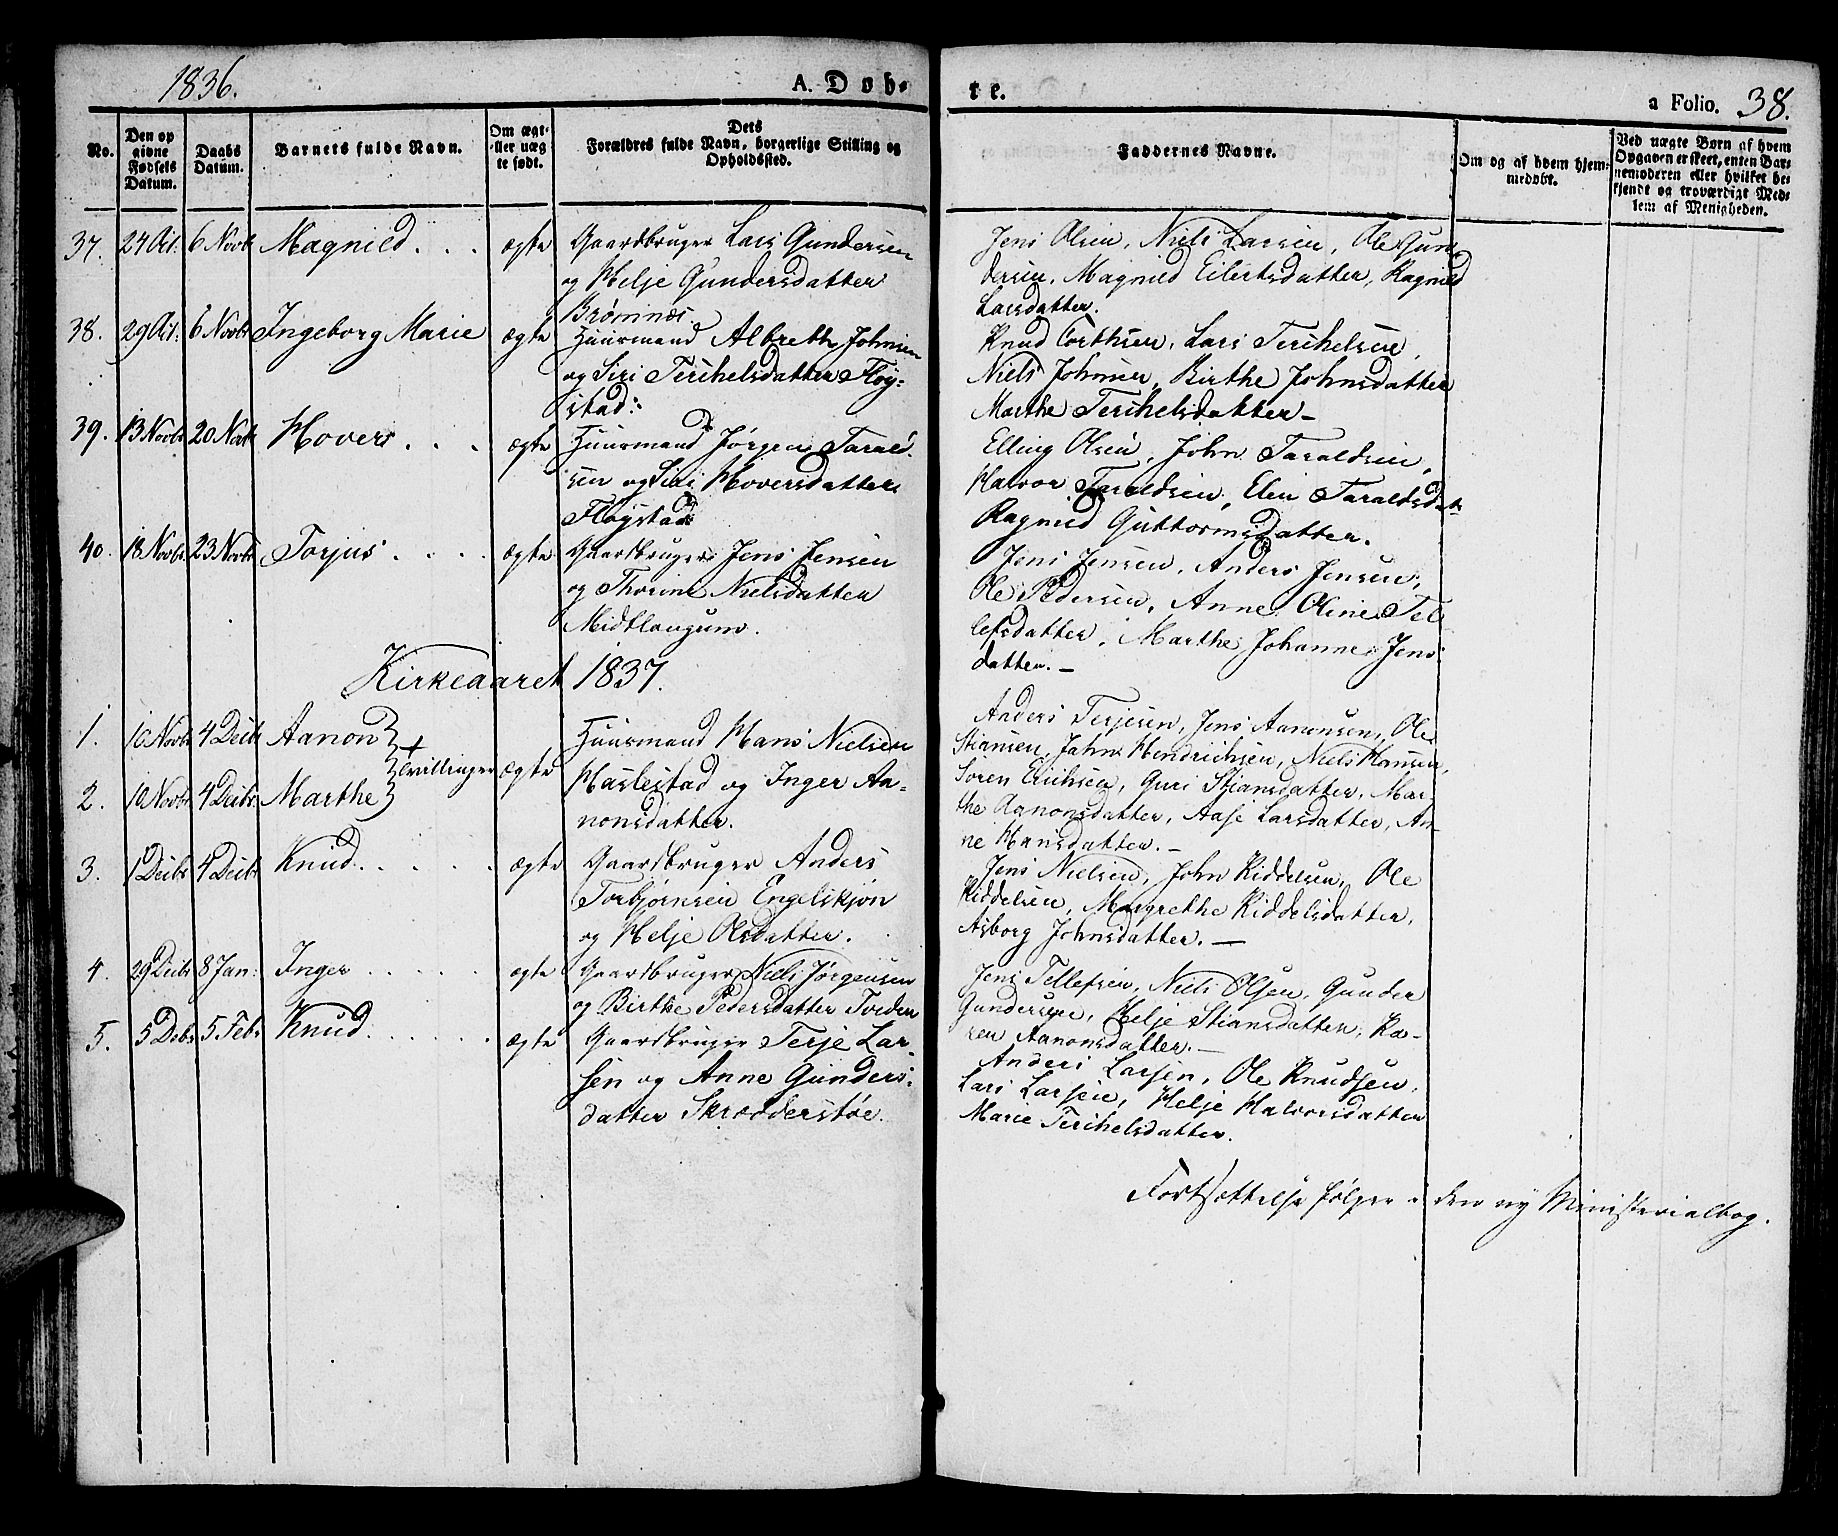 1836.
A. Døb-
te.
a Folio. 38.
No.
Den op givne Fødsels Datum.
Daabs Datum.
Barnets fulde Navn.
Om ægt- eller uæg te født.
Dets Forældres fulde Navn, borgerlige Stilling og Opholdssted.
Faddernes Navne.
Om og af hvem hjem- medøbt.
Ved uægte Børn af hvem Opgaven er skeet, enten Bar- nemoderen eller hvilket be- kjendt og troværdigt Med- lem af Menigheden.
37. 27 Oct: 6 Novbr Magnild . . . ægte Gaardbruger Lars Gundersen
og Helje Gundersdatter
Brømnæs.
Jens Olsen, Niels Larsen, Ole Gun-
dersen, Magnild Eilertsdatter, Ragnild
Larsdatter.
38. 29 Oct: 6 Novbr Ingeborg Marie ægte Huusmand Albreth Johnsen
og Siri Terichelsdatter Fløy-
stad:
Knud Corthsen, Lars Terichelsen,
Niels Johnsen, Birthe Johnsdatter
Marthe Terichelsdatter –
39. 13 Novbr 20 Novbr Hover . . . ægte Huusmand Jørgen Tarald-
sen og Siri Hoversdatter
Fløystad
Elling Olsen, John Taraldsen,
Halvor Taraldsen, Elen Taraldsdatr
Ragnild Guttormsdatter.
40. 18 Novbr 23 Novbr Torjus . . . . ægte Gaardbruger Jens Jensen
og Thorine Nielsdatter
Midtlangum.
Jens Jensen, Anders Jensen,
Ole Pedersen, Anne Oline Tel
lefsdatter, Marthe Johanne Jens
datter. –
Kirkeaaret 1837.
1. 10 Novbr 4 Decbr Aanon
2. 10 Novbr 4 Decbr Marthe
+ tvillinger ægte Huusmand Hans Nielsen
Haslestad og Inger Aa-
nonsdatter.
Anders Terjesen, Jens Aanonsen, Ole
Stiansen, John Hendrichsen, Niels Hansen,
Søren Erichsen, Guri Stiansdatter, Mar-
the Aanonsdatter, Aase Larsdatter, An-
ne Hansdatter. –
3. 1 Decbr 4 Decbr Knud . . . . . ægte Gaardbruger Anders
Torbjørnsen Engelskjøn
og Helje Olsdatter.
Jens Nielsen, John Kiddelsen, Ole
Kiddelsen, Margrethe Kiddelsdatter,
Asborg Johnsdatter. –
4. 29 Decbr 8 Jan: Inger . . . . . ægte Gaardbruger Niels Jørgensen
og Birthe Pedersdatter Tveden
Jens Tellefsen, Niels Olsen, Gunder
Gundersen, Helje Stiansdatter, Ka-
ren Aanonsdatter. –
5. 5 Debr 5 Febr Knud . . . . . . ægte Gaardbruger Terje Lar-
sen og Anne Gunders-
datter Skrædderstøe.
Anders Larsen, Ole Knudsen,
Lars Larsen, Helje Halvorsdatter
Marie Terichelsdatter.
Fortsættelse følger i den ny Ministerialbog.